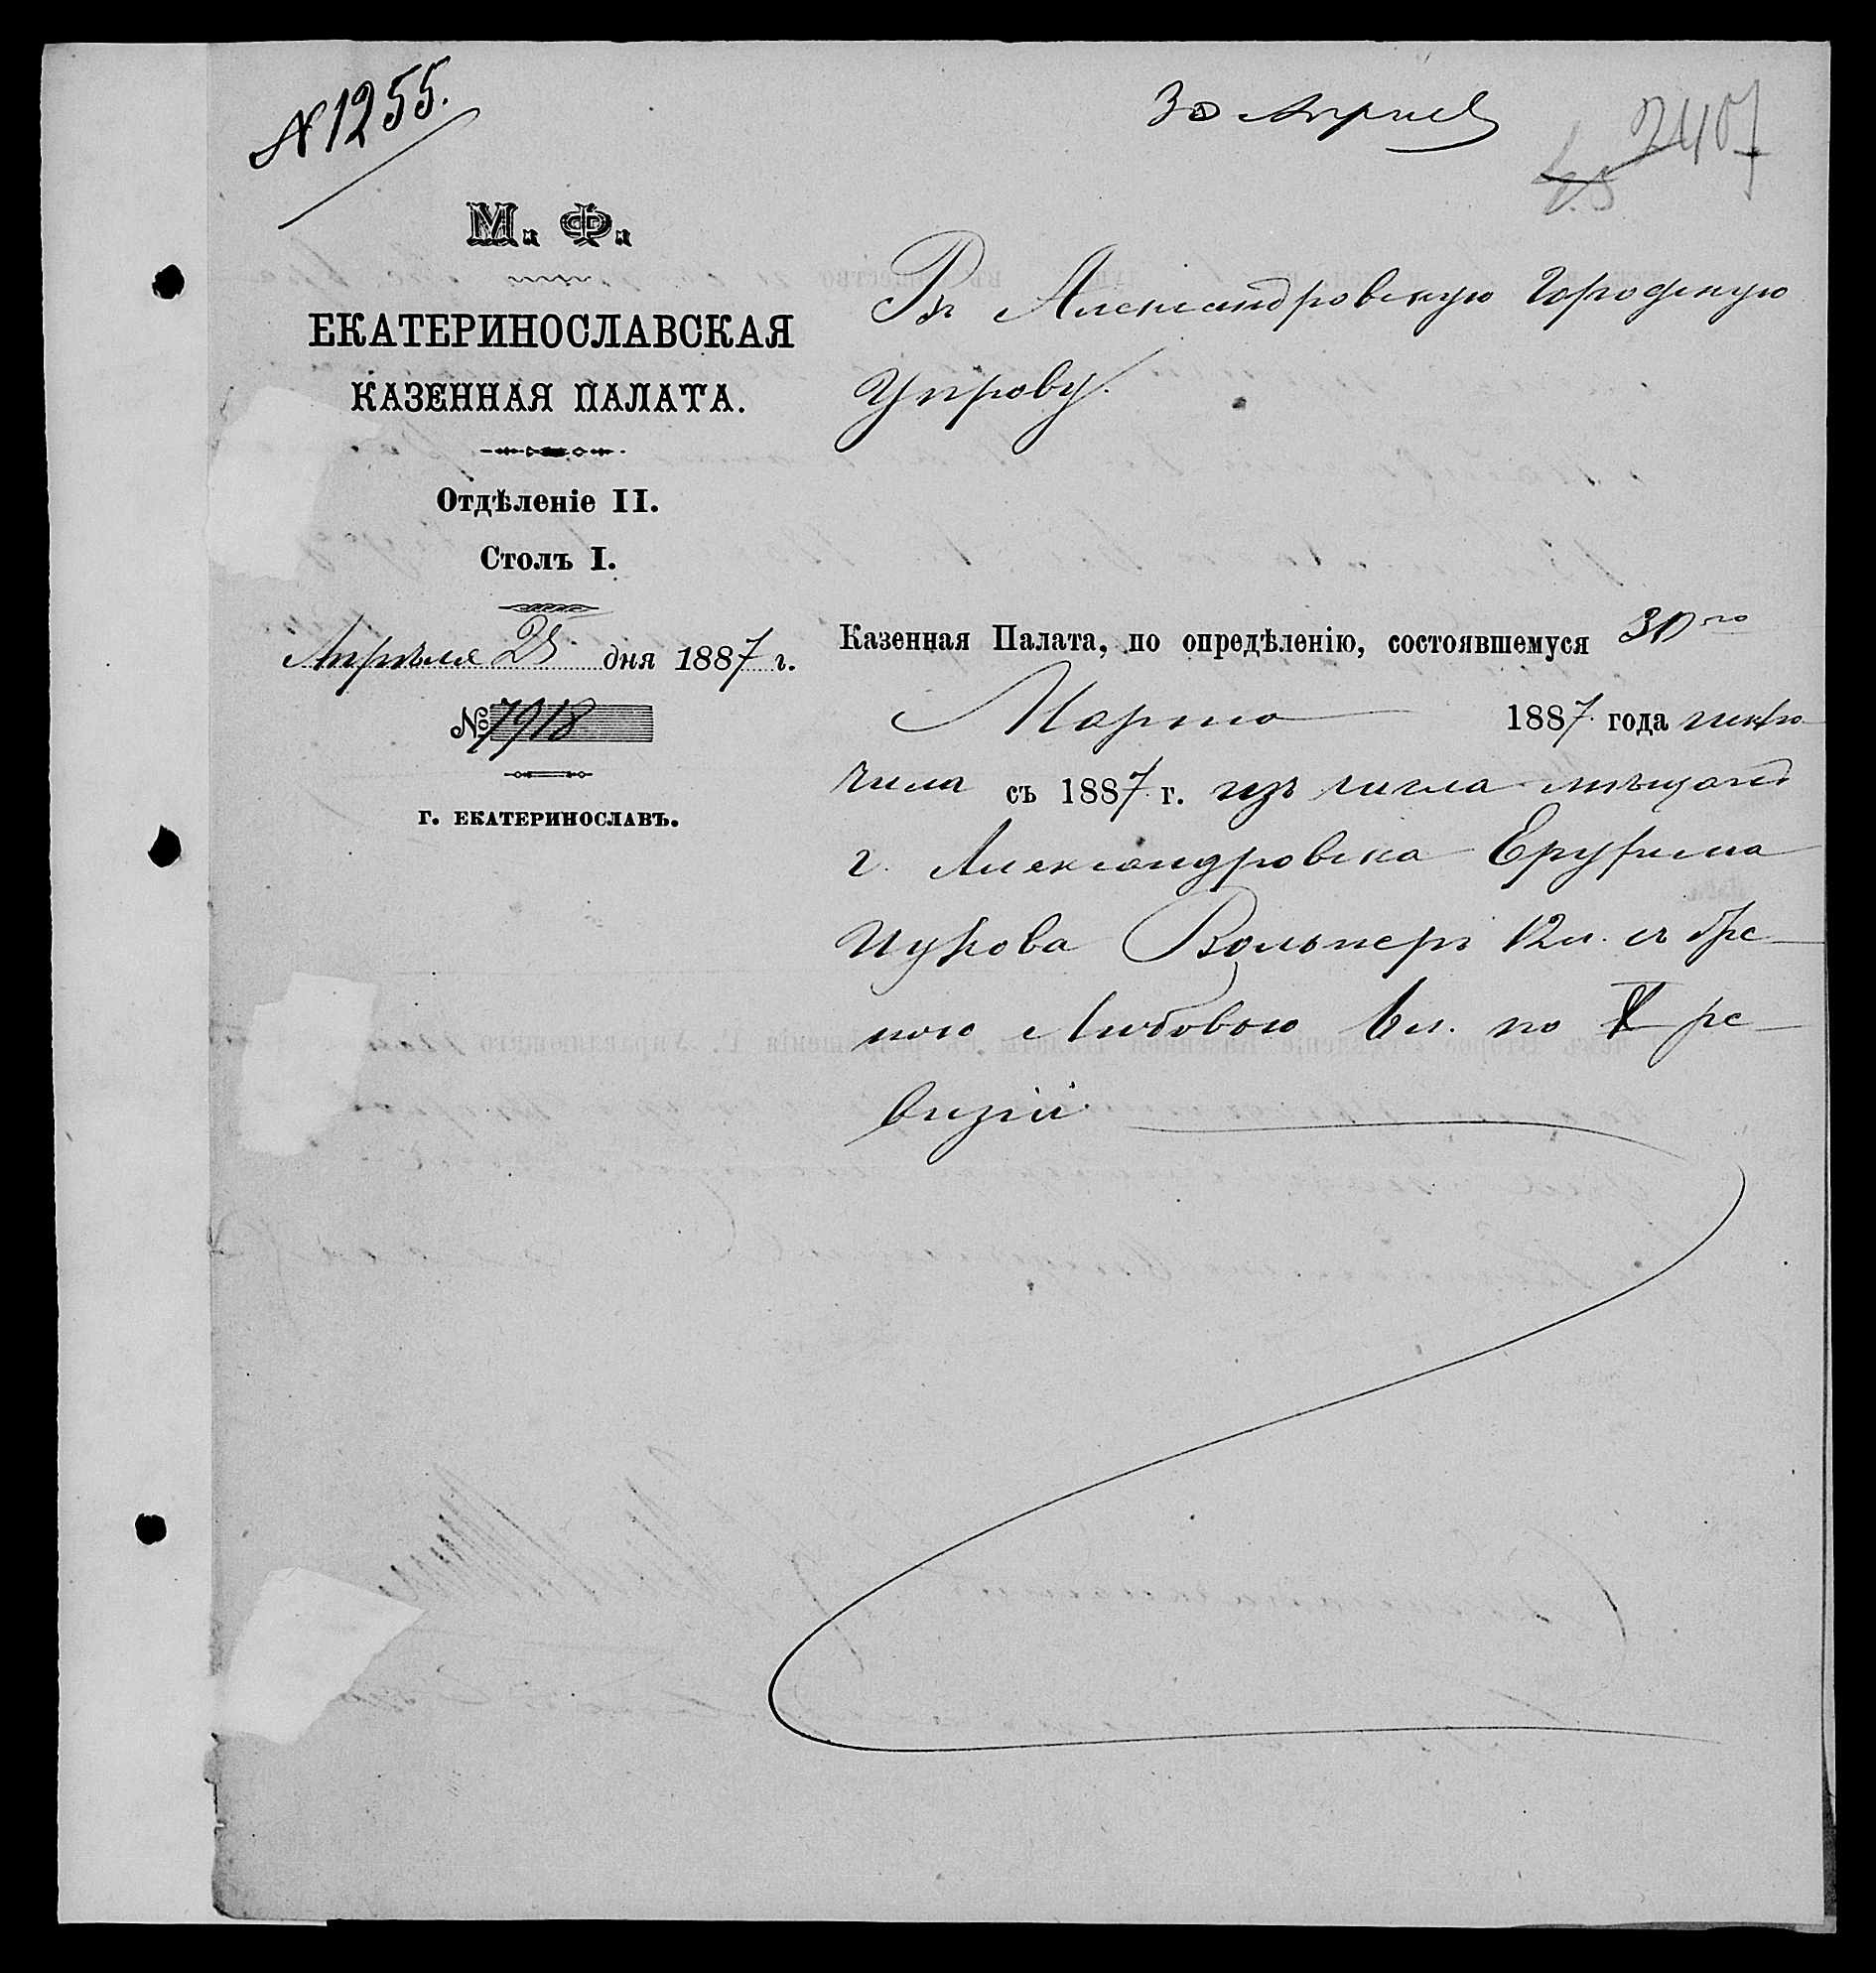 № 1255.
30 Апрѣля
2407
М. Ф.
ЕКАТЕРИНОСЛАВСКАЯ
КАЗЕННАЯ ПАЛАТА.
Отдѣленіе II.
Столъ I.
Апрѣля 25 дня 1887 г.
№ 7918
г. ЕКАТЕРИНОСЛАВЪ.
Въ Александровскую Городскую
Управу.
Казенная Палата, по опредѣленію, состоявшемуся 30го
Марта 1887 года исклю
чила съ 1887 г. изъ числа мѣщанъ
г. Александровска Ерухима
Ицкова Вольперъ 12л. съ
Любовью 6л. по X ре
визіи